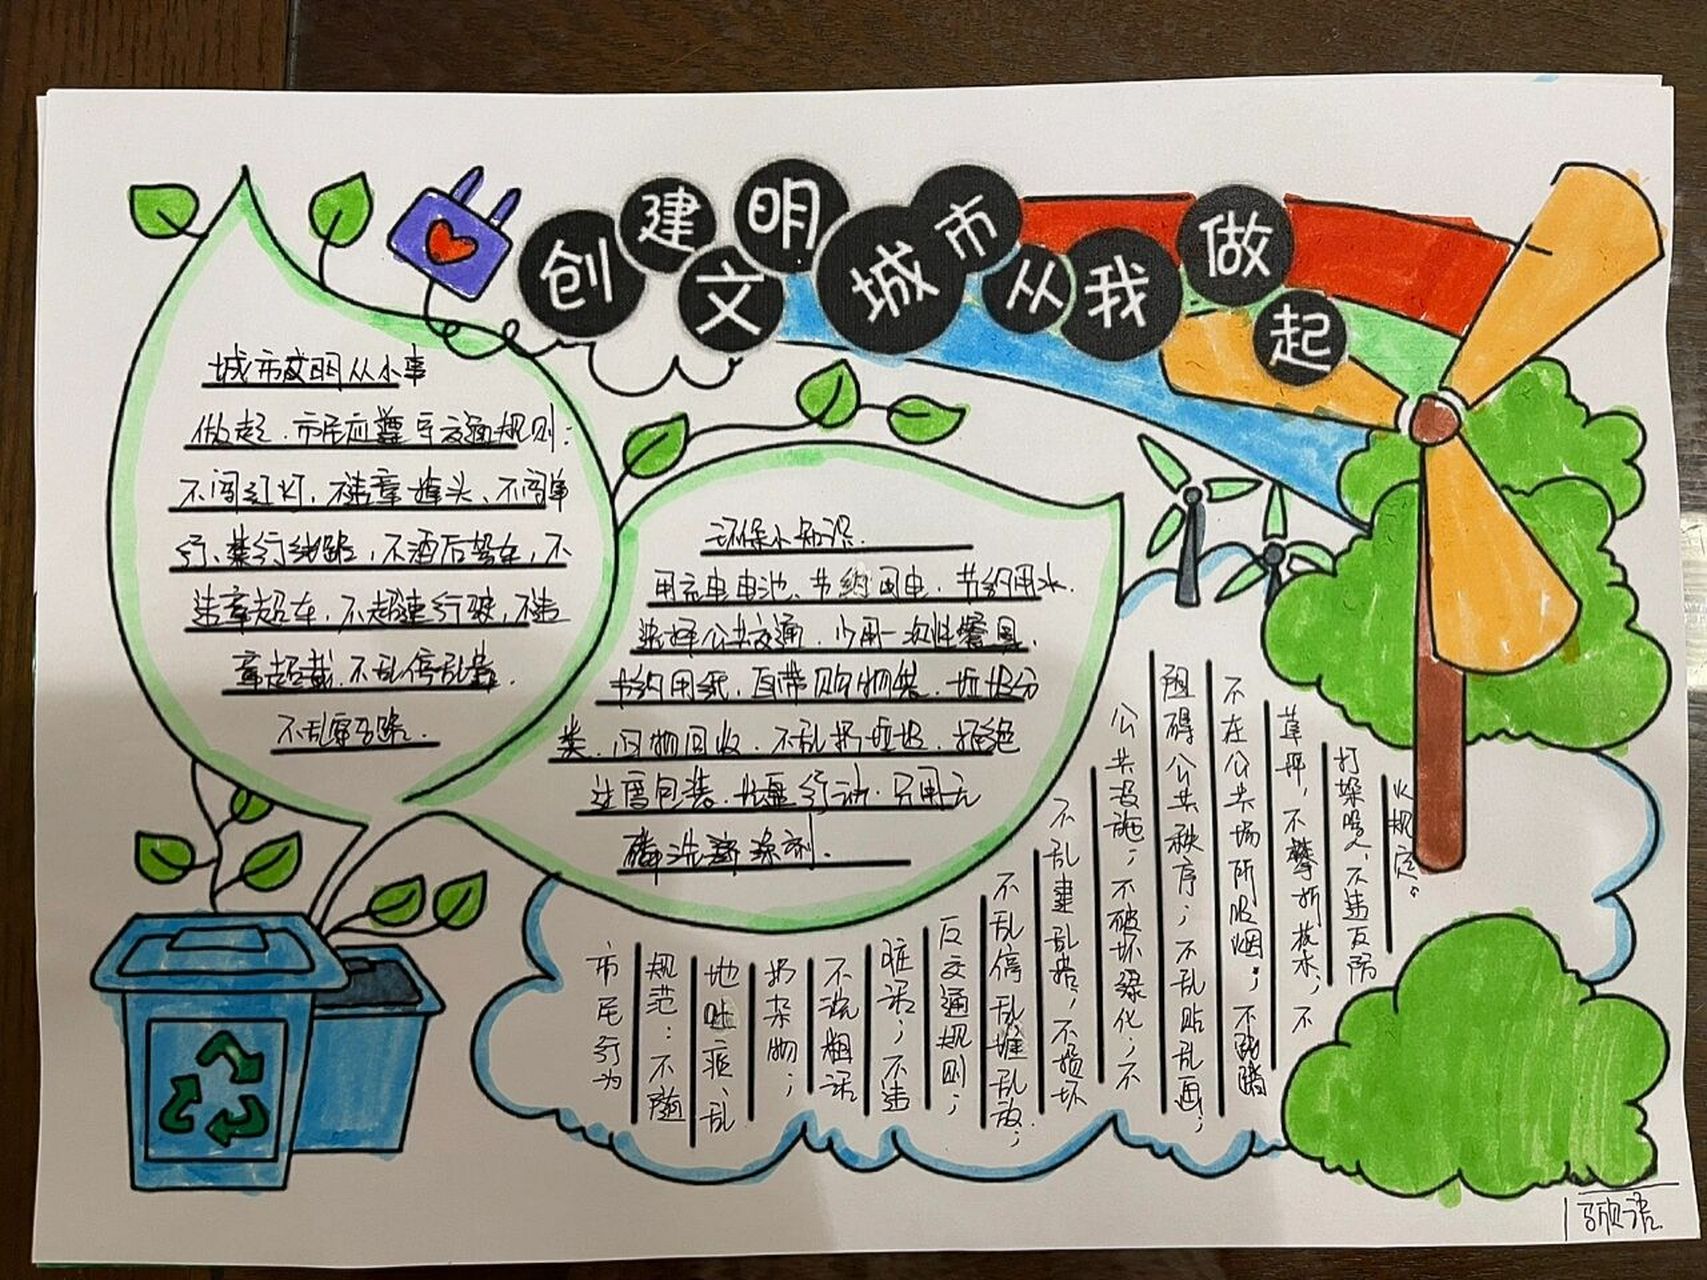 创建文明城市从我做起
城市文明从小事
做起.市民应遵守交通规则:
不闯红灯、不违章掉头、不闯单
行、禁行线路,不酒后驾车,不
违章超车,不超速行驶,不违
章超载.不乱停乱靠.
不乱穿马路.
环保小知识.
用充电电池、节约用电.节约用水.
选择公共交通.少用一次性餐具.
节约用纸.自带购物袋.垃圾分
类.旧物回收.不乱扔垃圾.拒绝
过度包装.光盘行动.只用无
磷洗涤剂.
市民行为
规范:不随
地吐痰、乱
扔杂物;
不说粗话
脏话;不违
反交通规则;
不乱停乱堆乱放;
不乱建乱搭,不损坏
公共设施;不破坏绿化;不
阻碍公共秩序;不乱贴乱画;
不在公共场所吸烟;不践踏
草坪,不攀折花木;不
打架骂人.不违反防
火规定。